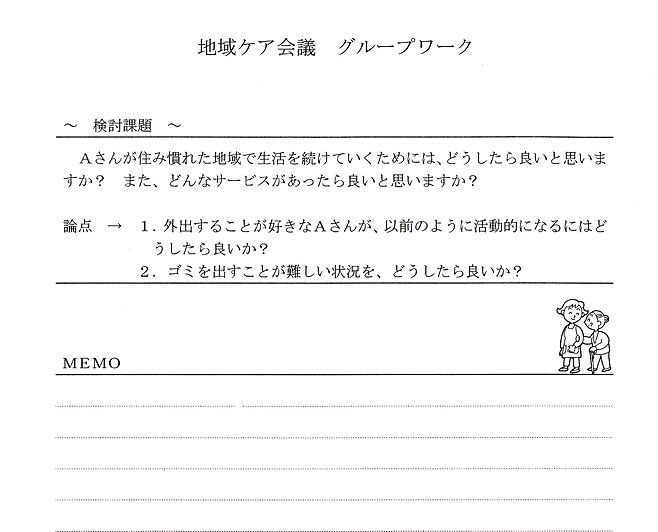 地域ケア会議　グループワーク
～　検討課題　～
Ａさんが住み慣れた地域で生活を続けていくためには、どうしたら良いと思いま
すか？　また、どんなサービスがあったら良いと思いますか？
論点　→　１．外出することが好きなＡさんが、以前のように活動的になるにはど
うしたら良いか？
２．ゴミを出すことが難しい状況を、どうしたら良いか？
MEMO